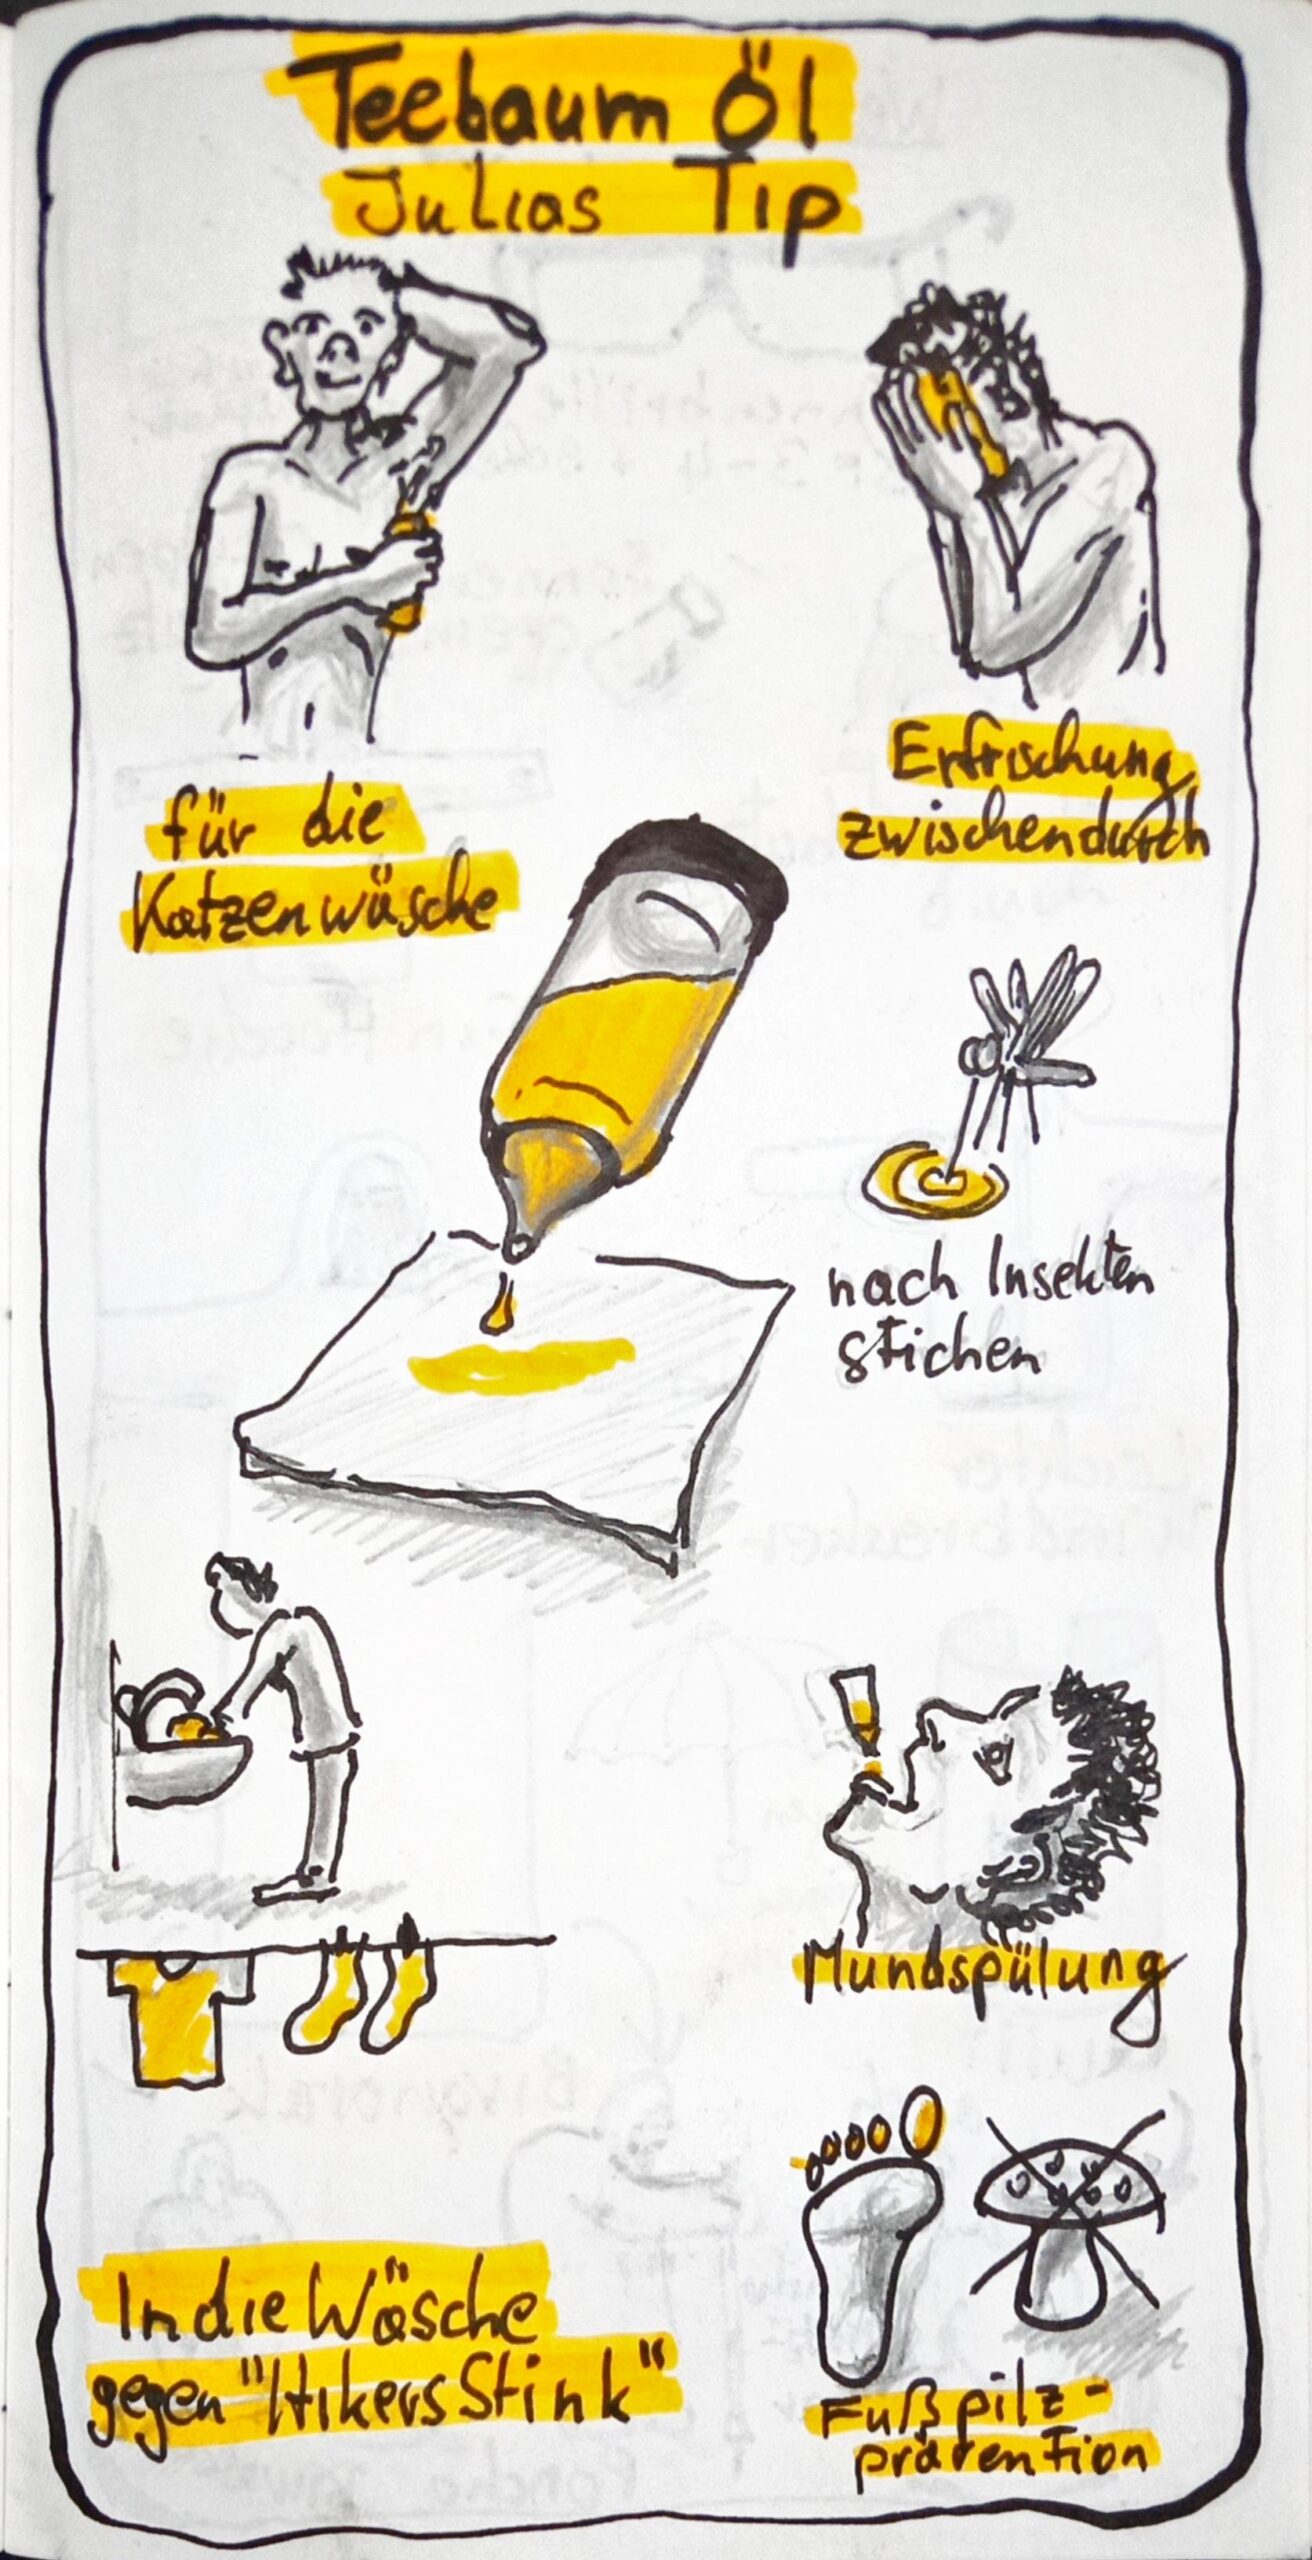 Teebaum Öl
Julias Tip
für die
Katzenwäsche
Erfrischung
zwischendurch
nach Insekten
stichen
Mundspülung
In die Wäsche
gegen "Hikers Stink"
Fußpilz-
prävention